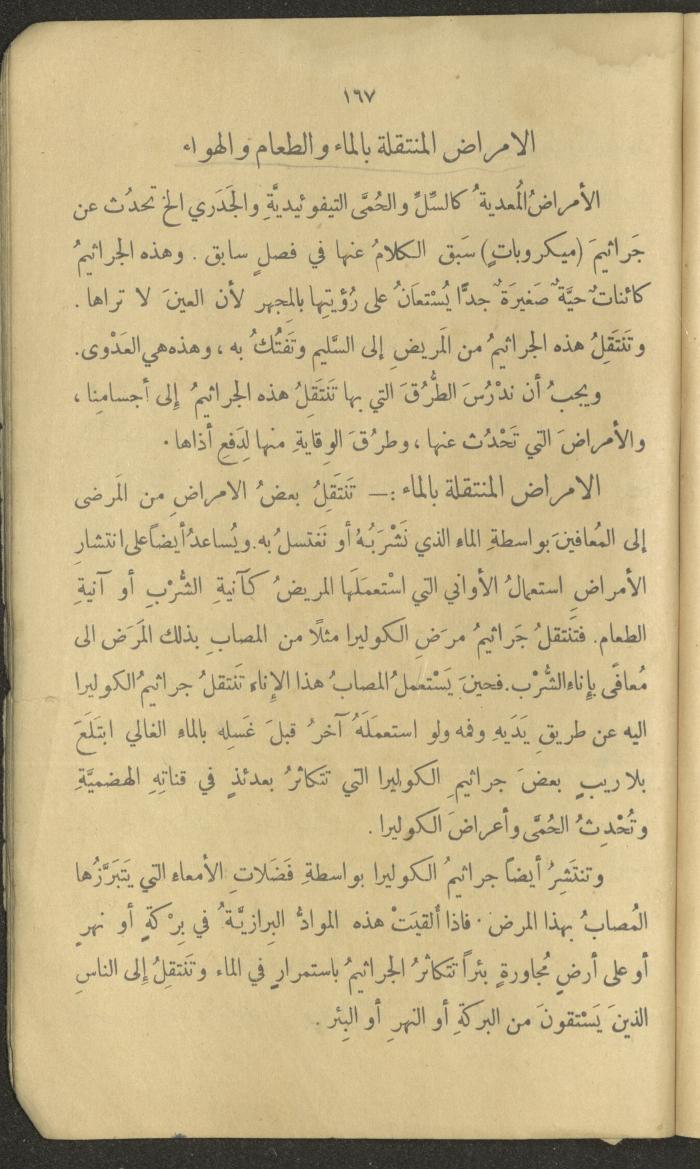 ١٦٧
الامراض المنتقلة بالماء والطعام والهواء
الأمراضُ المُعدية ُ كالسِّلِّ والحُمَّى التيفوئيديَّةِ والجَدَري الخ تحدُث عن
جَراثيمَ (ميكروباتٍ) سَبق الكلامُ عنها في فصلٍ سابق . وهذه الجراثيمُ
كائناتٌ حيَّةٌ صَغيرَةٌ جدًّا يُسْتعَانُ على رُؤيتِها بالمِجهر لأن العينَ لا تراها .
وتَنتَقِلُ هذه الجراثيمُ من المَريضِ إلى السَّليم وتَفتُكُ به ، وهذه هي العَدْوى.
ويجبُ أن ندْرُسَ الطُّرُقَ التي بها تَنتَقِلُ هذه الجراثيمُ إِلى أجسامنِا ،
والأمراضَ التي تَحْدُث عنها ، وطرُقَ الوِقايةِ منها لِدَفعِ أذاها .
الامراض المنتقلة بالماء : — تَنتَقِلُ بعضُ الامراضِ من المَرضى
إلى المُعافينَ بواسطةِ الماء الذي نَشْرَبُهُ أو نَغتسلُ به. ويُساعدُ أيضاً على انتشارِ
الأمراضِ استعمالُ الأواني التي اسْتعمَلَها المريضُ كآنيةِ الشُّرْبِ أو آنيةِ
الطعام. فتَنتقلُ جَراثيمُ مرَضِ الكوليرا مثلًا من المصابِ بذلك المَرَض الى
مُعافًى بإِناء الشُّرْب. فحينَ يَسْتعملُ المصابُ هذا الإِناء تَنتقلُ جراثيمُ الكوليرا
اليه عن طريقِ يَدَيهِ وفمه ولو استعمَلَهُ آخرُ قبلَ غَسلِه بالماء الغالي ابتَلَعَ
بلا ريبٍ بعضَ جراثيمِ الكوليرا التي تتكاثرُ بعدئذٍ في قناتِهِ الهضميَّةِ
وتُحْدِثُ الحُمَّى وأعراضَ الكوليرا .
وتنتَشِرُ أيضاً جراثيمُ الكوليرا بواسطةِ فَضَلاتِ الأمعاء التي يَتبَرَّزُها
المُصابُ بهذا المرض . فاذا أُلقيَتْ هذه الموادُّ البِرازيَّةُ في بِرْكةٍ أو نهرٍ
أو على أرضٍ مُجاورةٍ بئراً تتكاثرُ الجراثيمُ باستمرارٍ في الماء وتَنتقِلُ إلى الناسِ
الذينَ يَسْتقونَ من البركةِ أو النهرِ أو البِئر .